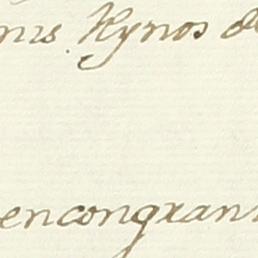 nis Hynos de
encongxan